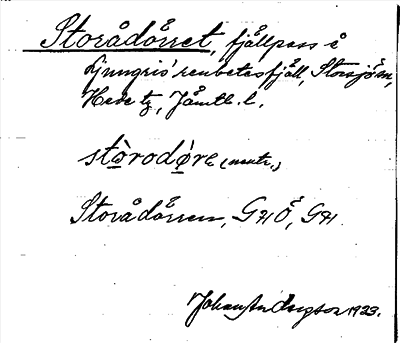 Storådörret, fjällpass å
Ljungris' renbetesfjäll, Storsjö sn,
Hede tg, Jämtl. l.
stòrodøre (neutr.)
Storådörren, G41Ö, G41.
Johan Anderzson 1923.